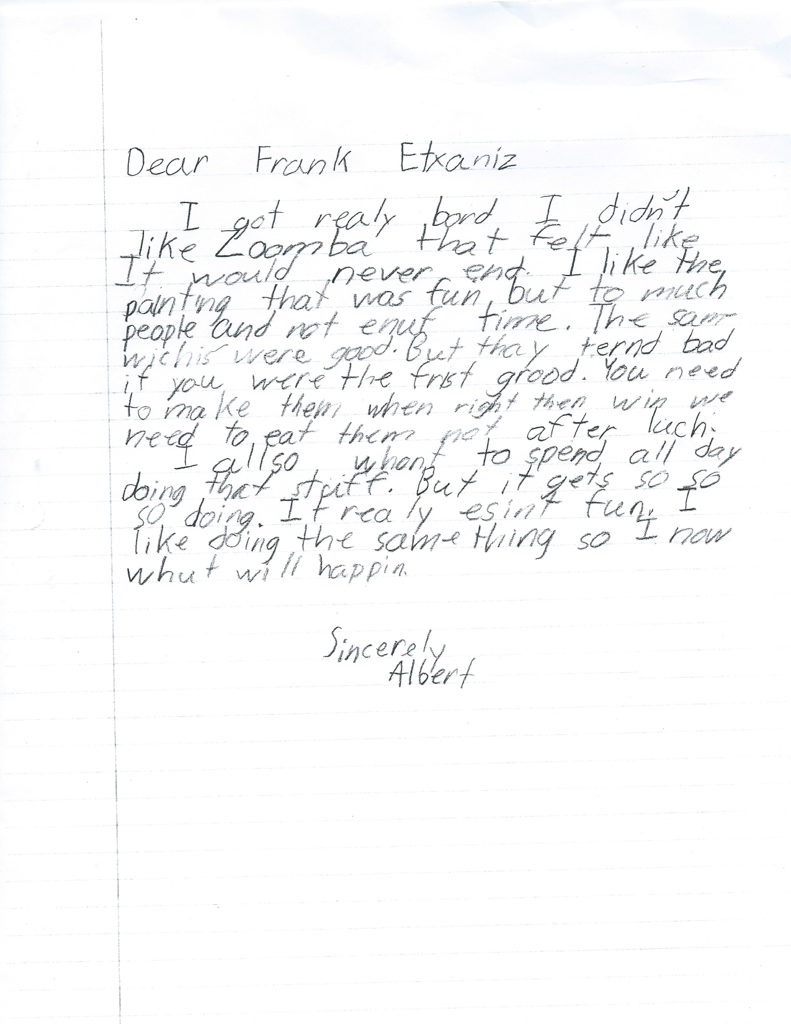 Dear Frank Etxaniz
I got realy bord I didn't
like Zoomba that felt like
It would never end. I like the
painting that was fun, but to much
people and not enuf time. The sam-
wichis were good. But thay ternd bad
if you were the frist grood. You need
to make them when right then win we
need to eat them not after luch.
I allso whont to spend all day
doing that stuff. But it gets so so
so doing. It realy esint fun. I
like doing the same thing so I now
whut will happin.
Sincerely
Albert